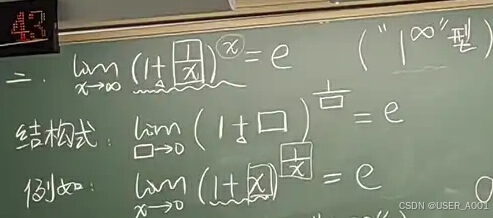 43
二. lim x→∞ (1+1/x)^x = e ("1^∞"型)
结构式: lim □→0 (1+□)^(1/□) = e
例如: lim x→0 (1+x)^(1/x) = e
CSDN @USER_A001